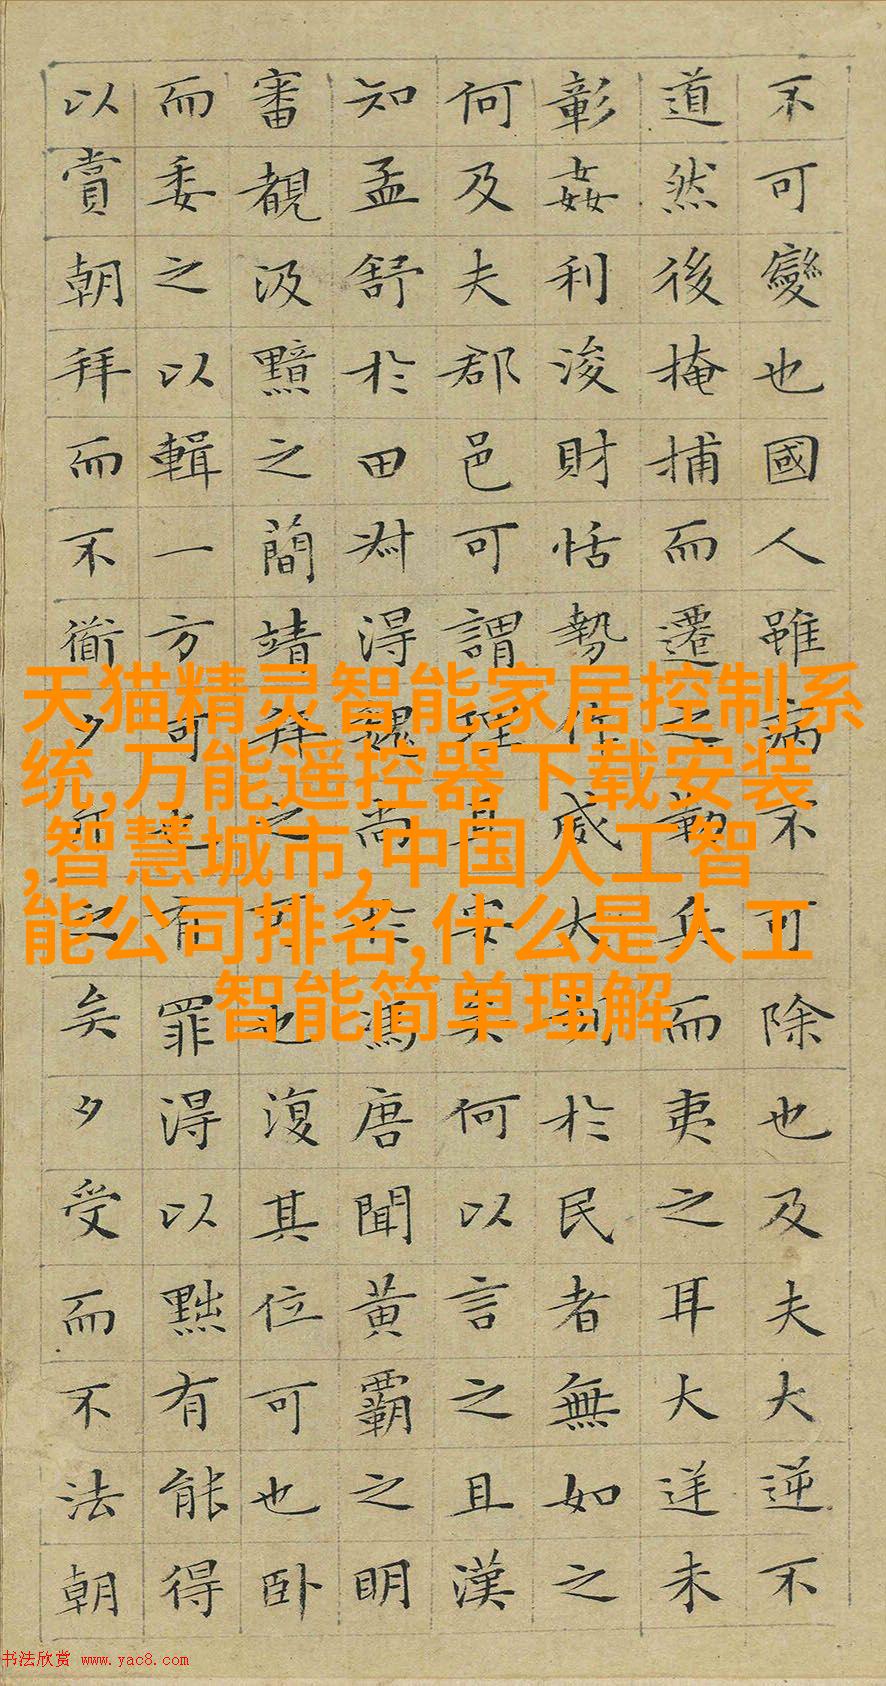 不可變也國人雖病不可除也及夫大逆不
道然後掩捕而遷之勒兵而夷之耳大逆未
彰姦利浚財恬勢作威大刻於民者無如之
何及夫郡邑可謂理且安矣何以言之且漢
知孟舒於田叔得魏尚於馮唐聞黃霸之明
審覩汲黯之簡靖拜之可也復其位可也臥
而委之以輯一方可也有罪得以黜有能得
以賞朝拜而不衜夕斥之矣夕受而不法朝
天猫精灵智能家居控制系
统,万能遥控器下载安装
,智慧城市,中国人工智
能公司排名,什么是人工
智能简单理解
书法欣赏 www.yac8.com